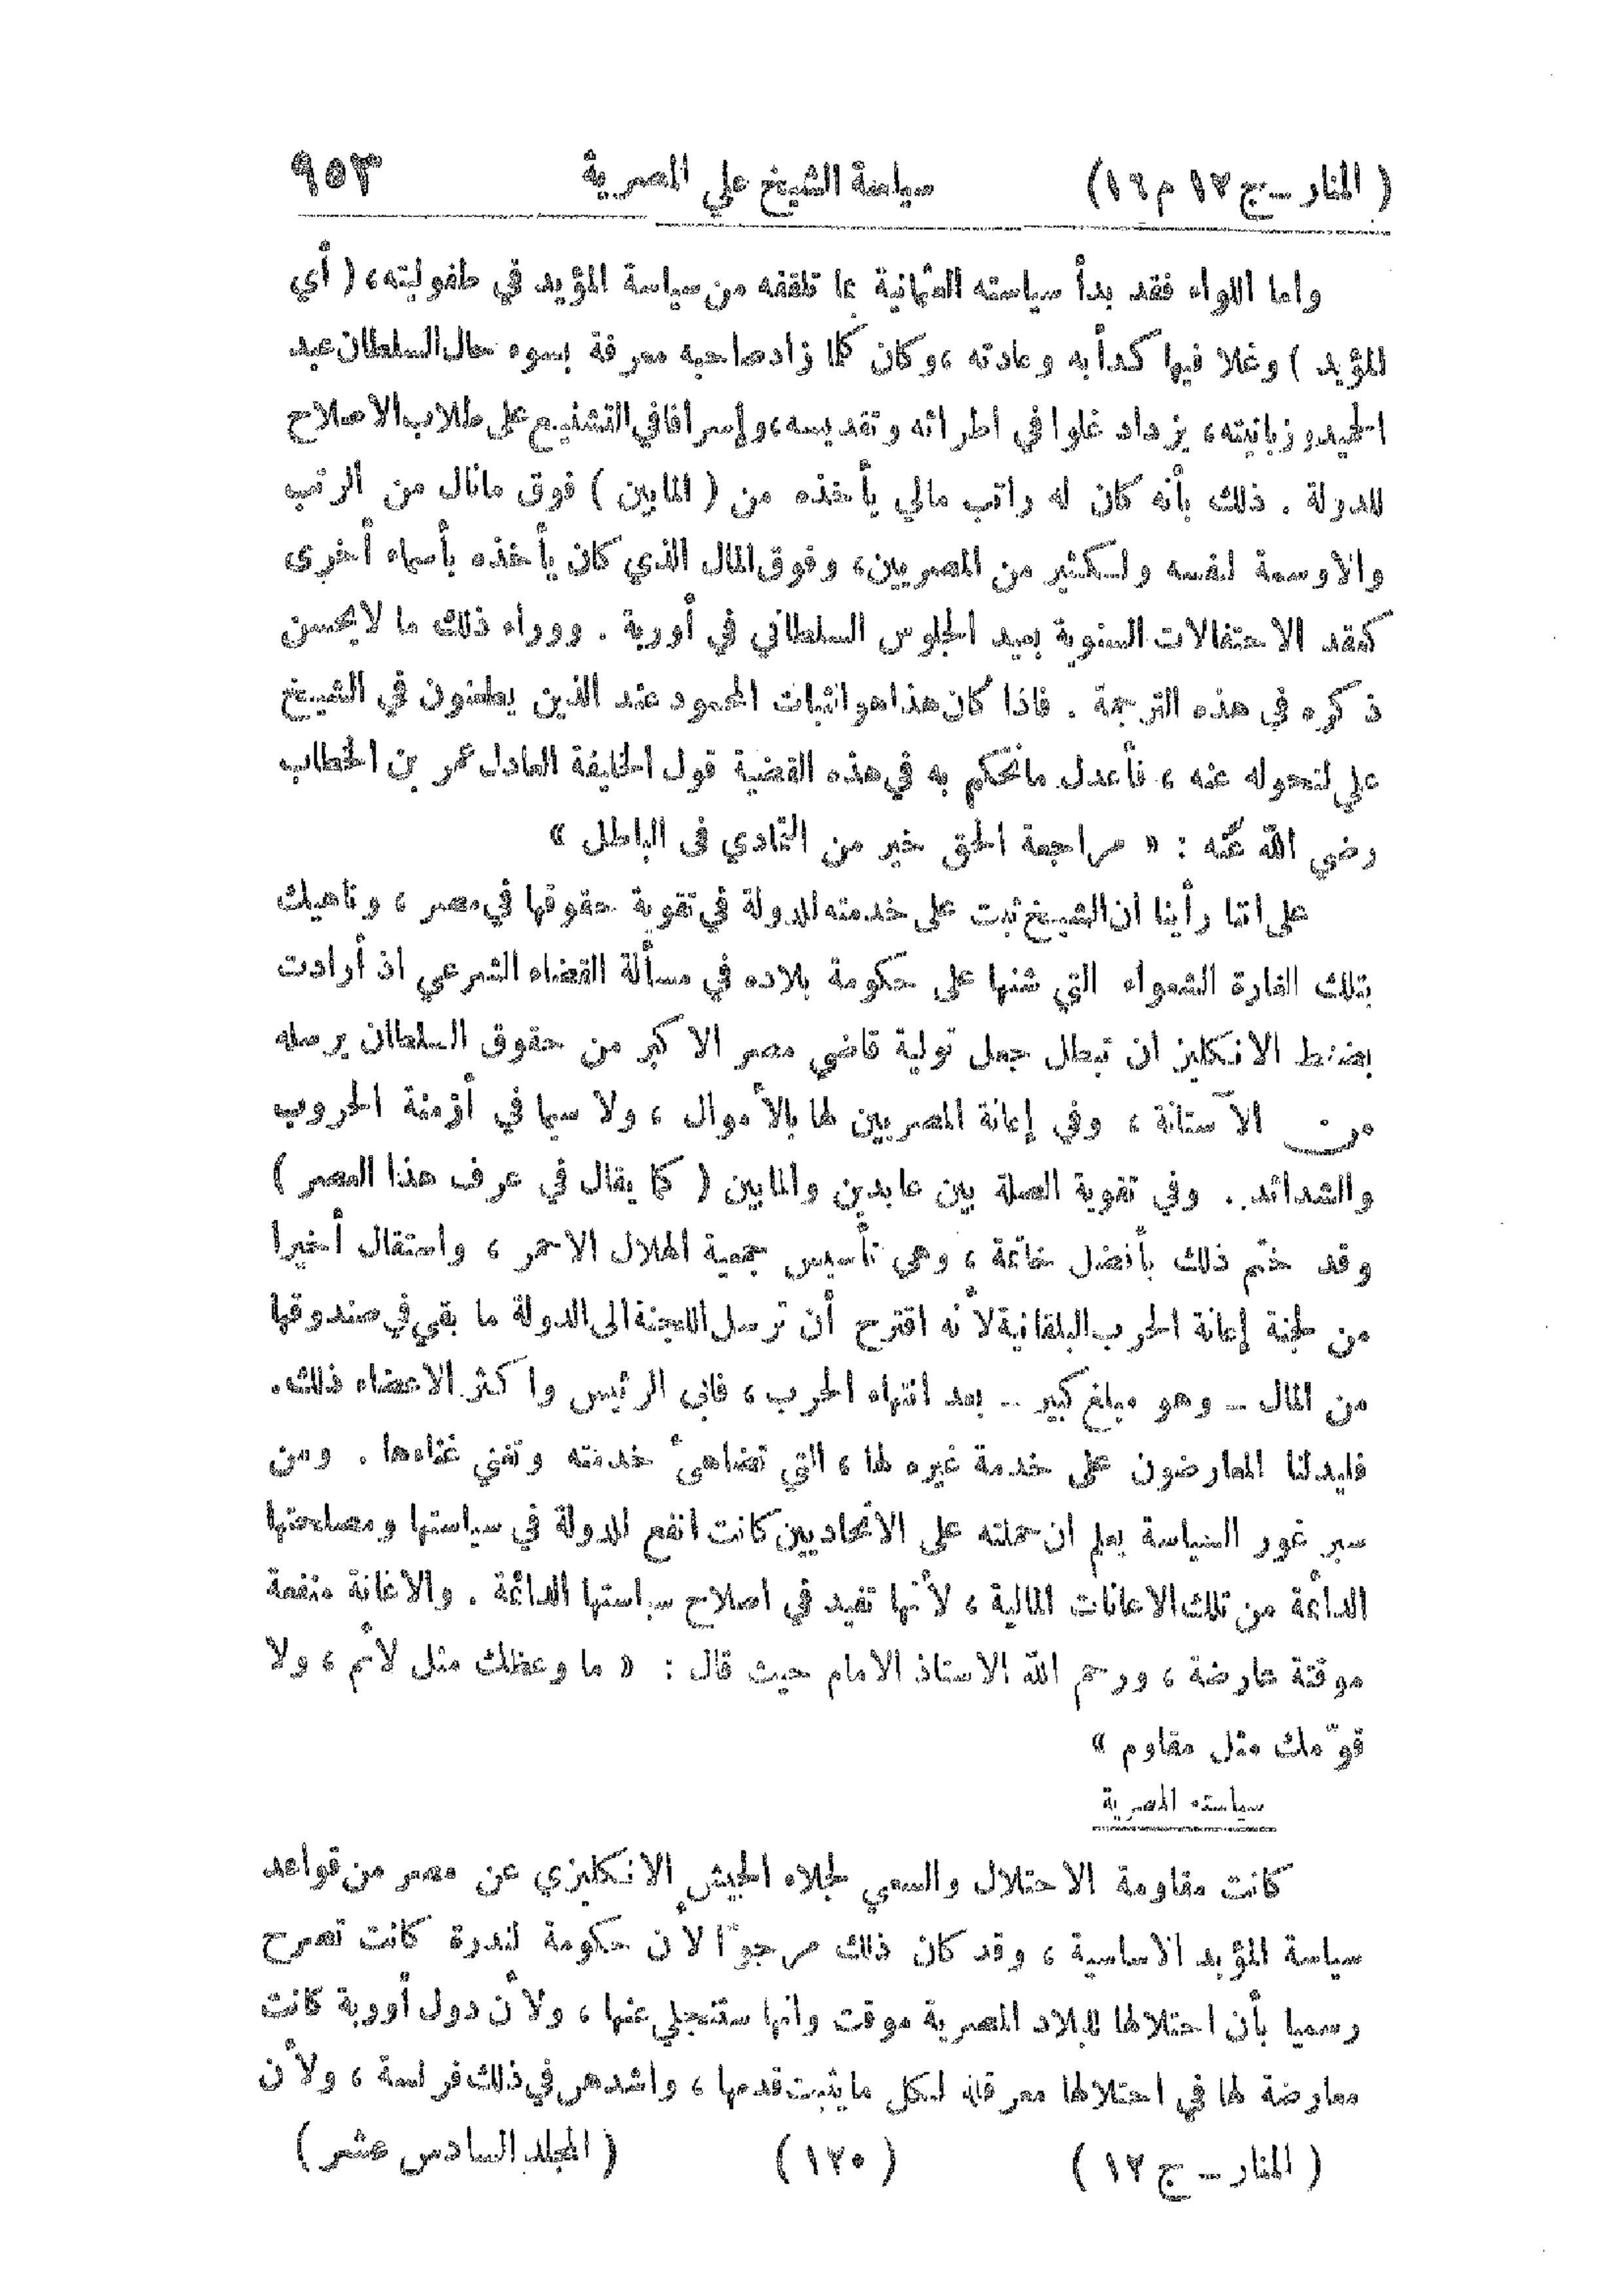 ( المنار – ج ١٢ م ١٦) سياسة الشيخ علي المصرية ٩٥٣
واما اللواء فقد بدأ سياسته العثمانية بما تلقفه من سياسة المؤيد في طفوليته، ( أي
المؤيد ) وغلا فيها كدأبه وعادته ،وكان كلما زادصاحبه معرفة بسوء حال السلطان عبد
الحميدوزبانيته، يزداد غلوا في اطرائه وتقديسه،وإسرافافي التشنيع على طلاب الاصلاح
للدولة . ذلك بأنه كان له راتب مالي يأخذه من ( المابين ) فوق مانال من الرتب
والاوسمة لنفسه ولكثير من المصريين، وفوق المال الذي كان يأخذه بأسماء أخرى
كعقد الاحتفالات السنوية بعيد الجلوس السلطاني في أوربة . ووراء ذلك ما لايحسن
ذكره في هذه الترجمة . فاذا كان هذاهواثبات المحمود عند الذين يطعنون في الشيخ
علي لتحوله عنه ، فأعدل مانحكم به في هذه القضية قول الخليفة العادل عمر بن الخطاب
رضي الله عنه : « مراجعة الحق خير من التمادي في الباطل »
على اننا رأينا ان الشيخ ثبت على خدمته للدولة في تقوية حقوقها في مصر ، وناهيك
بتلك الغارة الشعواء التي شنها على حكومة بلاده في مسألة القضاء الشرعي اذ أرادت
بضغط الانكليز ان تبطل جعل تولية قاضي مصر الاكبر من حقوق السلطان يرسله
من الآستانة ، وفي إعانة المصريين لها بالأموال ، ولا سيما في أزمنة الحروب
والشدائد . وفي تقوية الصلة بين عابدين والمابين ( كما يقال في عرف هذا العصر )
وقد ختم ذلك بأفضل خاتمة ، وهي تأسيس جمعية الهلال الاحمر ، واستقال أخيرا
من لجنة إعانة الحرب البلقانية لأنه اقترح أن ترسل اللجنة الى الدولة ما بقي في صندوقها
من المال – وهو مبلغ كبير – بعد انتهاء الحرب ، فابى الرئيس واكثر الاعضاء ذلك.
فليدلنا المعارضون على خدمة غيره لها ، التي تضاهئ خدمته وتغني غناءها . ومن
سبر غور السياسة يعلم ان حملته على الاتحاديين كانت انفع للدولة في سياستها ومصلحتها
الدائمة من تلك الاعانات المالية ، لأنها تفيد في اصلاح سياستها الدائمة . والاغانة منفعة
موقتة عارضة ، ورحم الله الاستاذ الامام حيث قال : « ما وعظك مثل لائم ، ولا
قوّمك مثل مقاوم »
سياسته المصرية
كانت مقاومة الاحتلال والسعي لجلاء الجيش الانكليزي عن مصر من قواعد
سياسة المؤيد الاساسية ، وقد كان ذلك مرجوّا لأن حكومة لندرة كانت تصرح
رسميا بأن احتلالها للبلاد المصرية موقت وانها ستنجلي عنها ، ولأن دول أوربة كانت
معارضة لها في احتلالها معرقلة لكل مايثبت قدمها ، واشدهن في ذلك فرنسة ، ولأن
( المنار – ج ١٢ ) ( ١٢٠ ) ( المجلد السادس عشر )